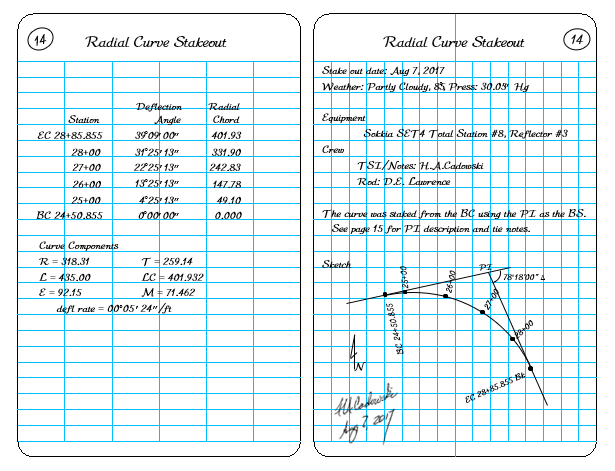 14
Radial Curve Stakeout
Deflection Radial
Station Angle Chord
EC 28+85.855 39°09'00" 401.93
28+00 31°25'13" 331.90
27+00 22°25'13" 242.83
26+00 13°25'13" 147.78
25+00 4°25'13" 49.10
BC 24+50.855 0°00'00" 0.000
Curve Components
R = 318.31 T = 259.14
L = 435.00 LC = 401.932
E = 92.15 M = 71.462
defl rate = 00°05' 24"/ft
Radial Curve Stakeout
14
Stake out date: Aug 7, 2017
Weather: Partly Cloudy, 85, Press: 30.03" Hg
Equipment
Sokkia SET4 Total Station #8, Reflector #3
Crew
TSI/Notes: H.A.Cadowski
Rod: D.E. Lawrence
The curve was staked from the BC using the PI as the BS.
See page 15 for PI description and tie notes.
Sketch
PI
78°18'00" Δ
25+00
26+00
27+00
28+00
BC 24+50.855
EC 28+85.855 Bk
N
HACadowski
Aug 7, 2017